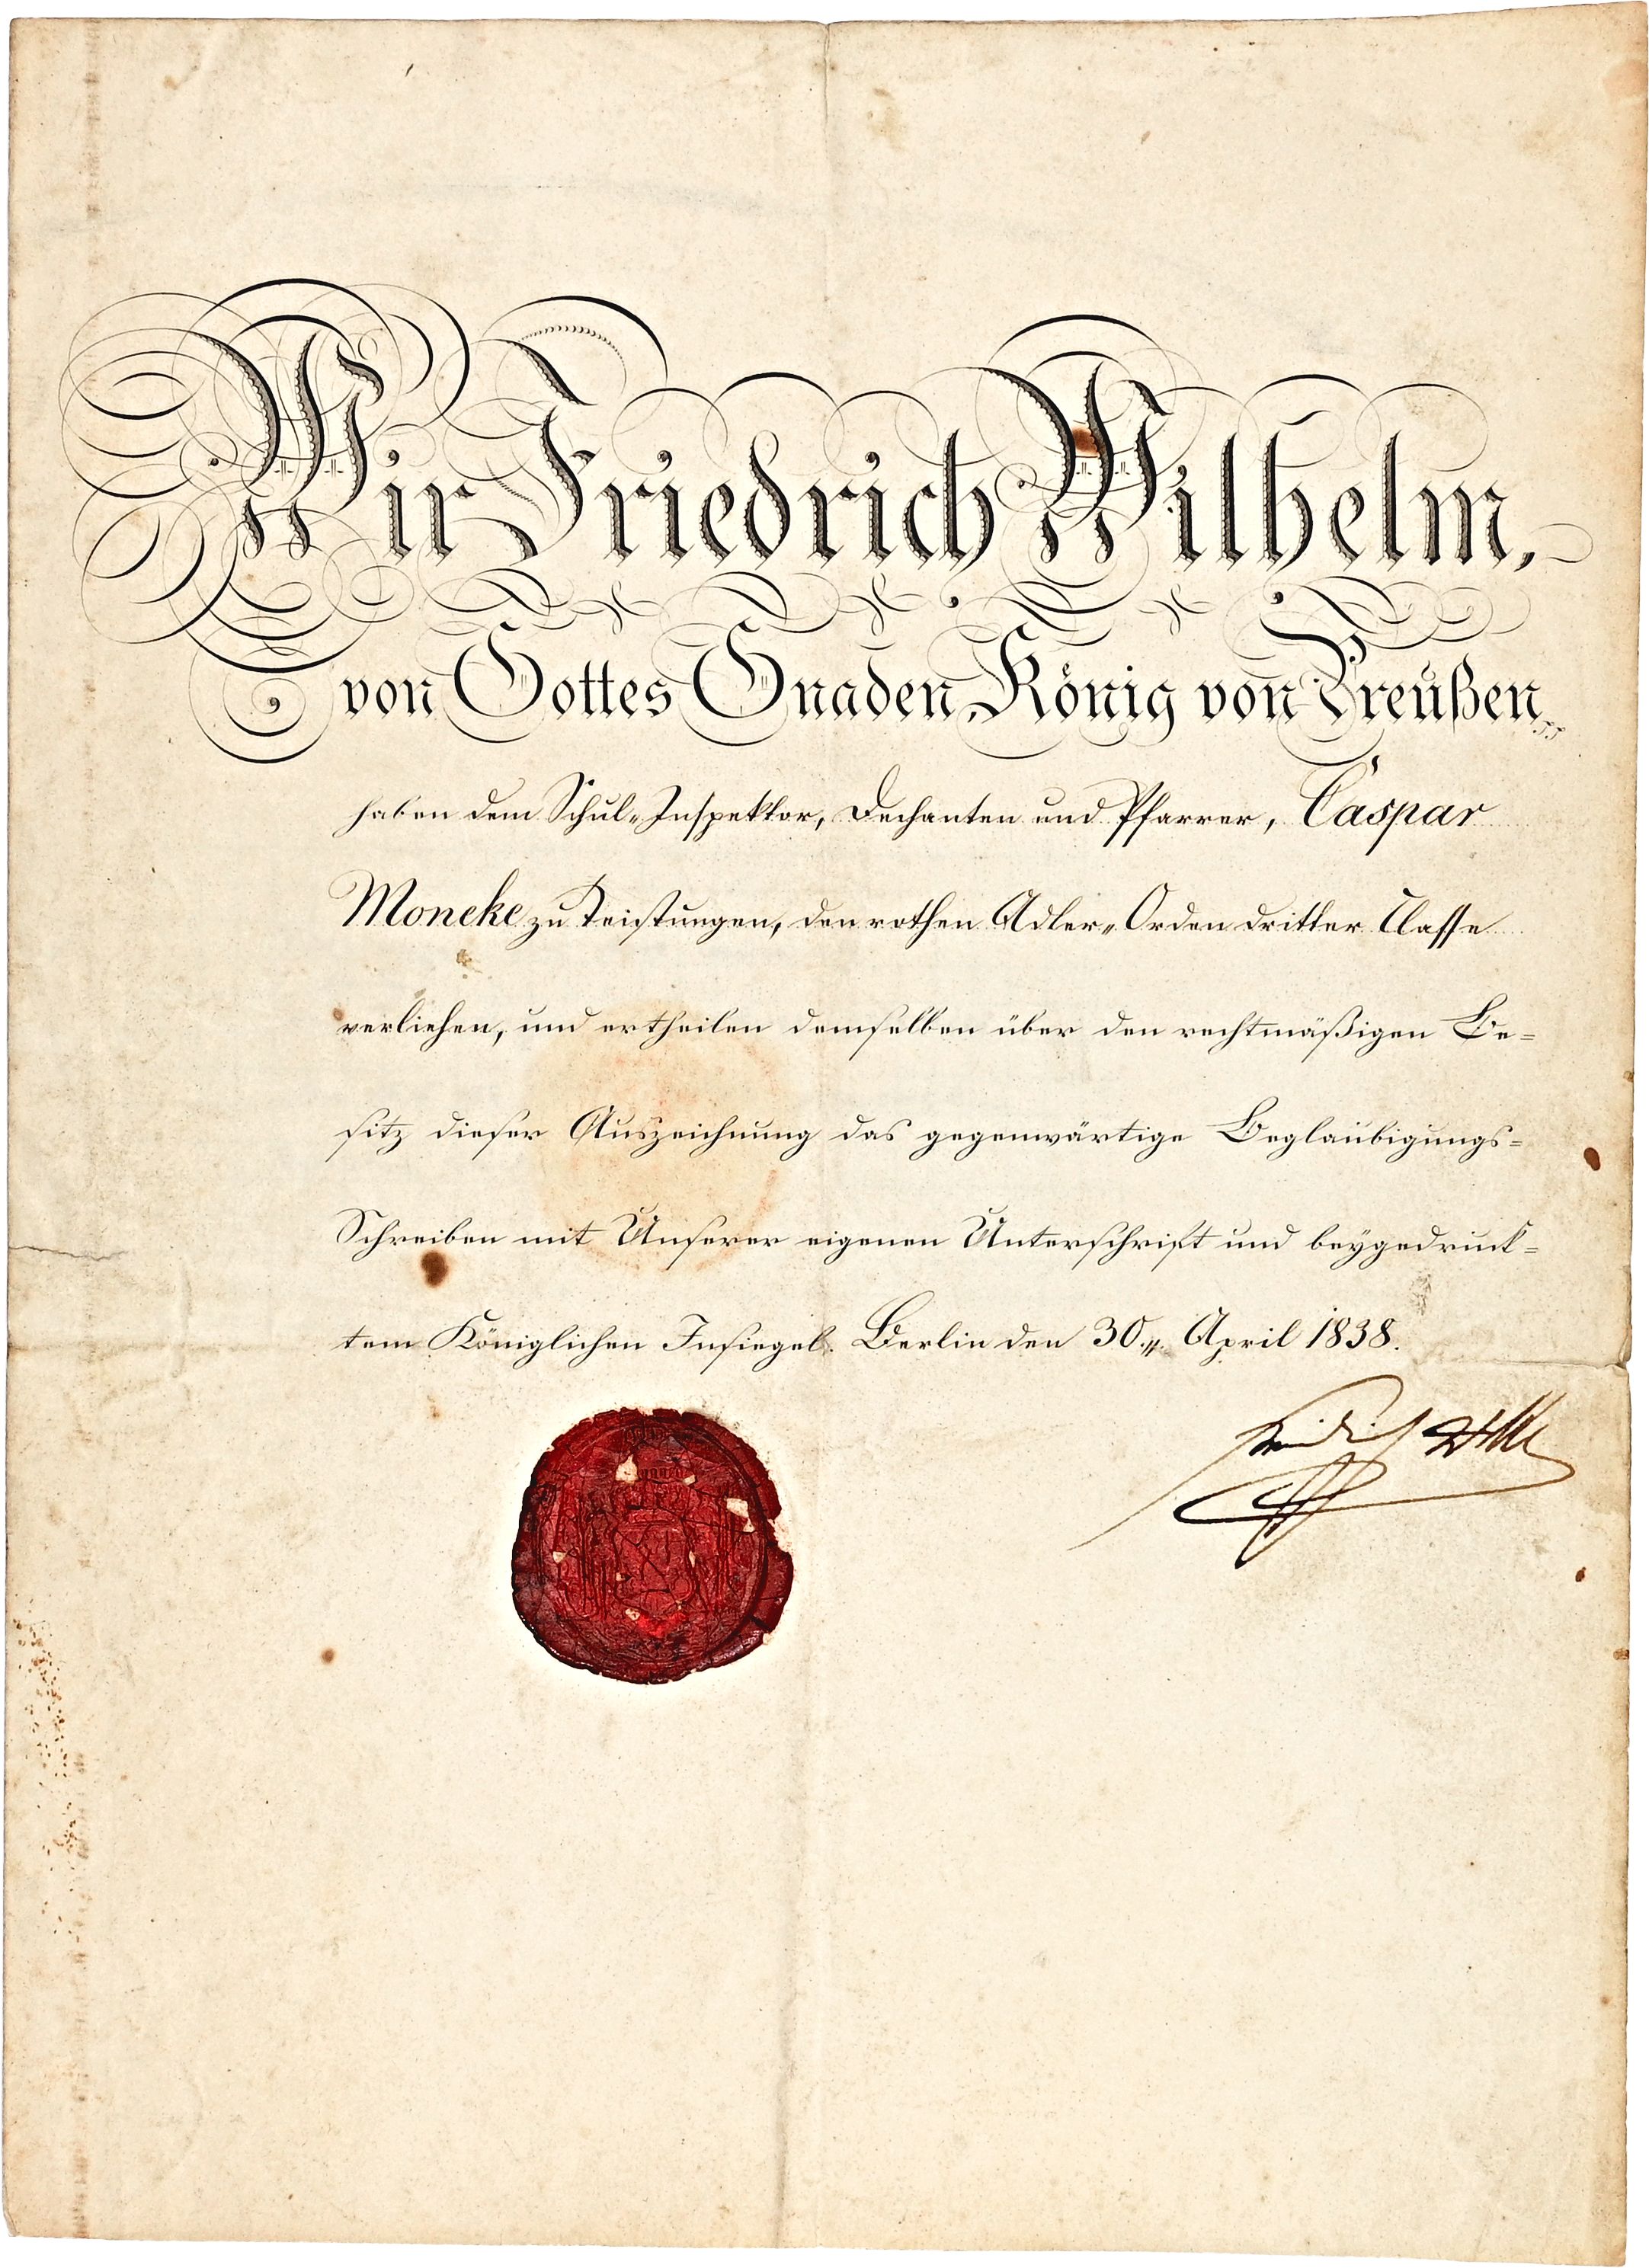 Wir Friedrich Wilhelm,
von Gottes Gnaden, König von Preußen
haben dem Schul-Inspektor, Dechanten und Pfarrer, Caspar
Moneke zu Teistungen, den rothen Adler-Orden dritter Classe
verliehen, und ertheilen demselben über den rechtmäßigen Be=
sitz dieser Auszeichnung das gegenwärtige Beglaubigungs=
Schreiben mit Unserer eigenen Unterschrift und beygedruck=
tem Königlichen Insiegel. Berlin den 30. April 1838.